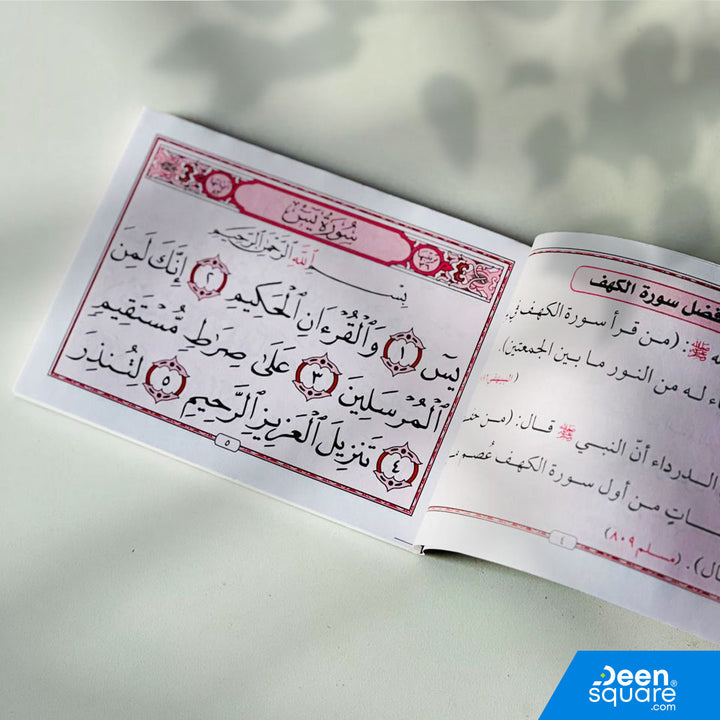 فضل سورة الكهف
ﷺ: (من قرأ سورة الكهف في
له من النور ما بين الجمعتين).
الدرداء أنّ النبي ﷺ قال: (من
من أول سورة الكهف عُصم
(مسلم ٨٠٩)
٤
سُورَةُ يسٓ
بِسْمِ ٱللَّهِ ٱلرَّحْمَٰنِ ٱلرَّحِيمِ
يسٓ ١ وَٱلْقُرْءَانِ ٱلْحَكِيمِ ٢ إِنَّكَ لَمِنَ
ٱلْمُرْسَلِينَ ٣ عَلَىٰ صِرَٰطٍ مُّسْتَقِيمٍ
٤ تَنزِيلَ ٱلْعَزِيزِ ٱلرَّحِيمِ ٥ لِتُنذِرَ
٥
Deen®
square
.com